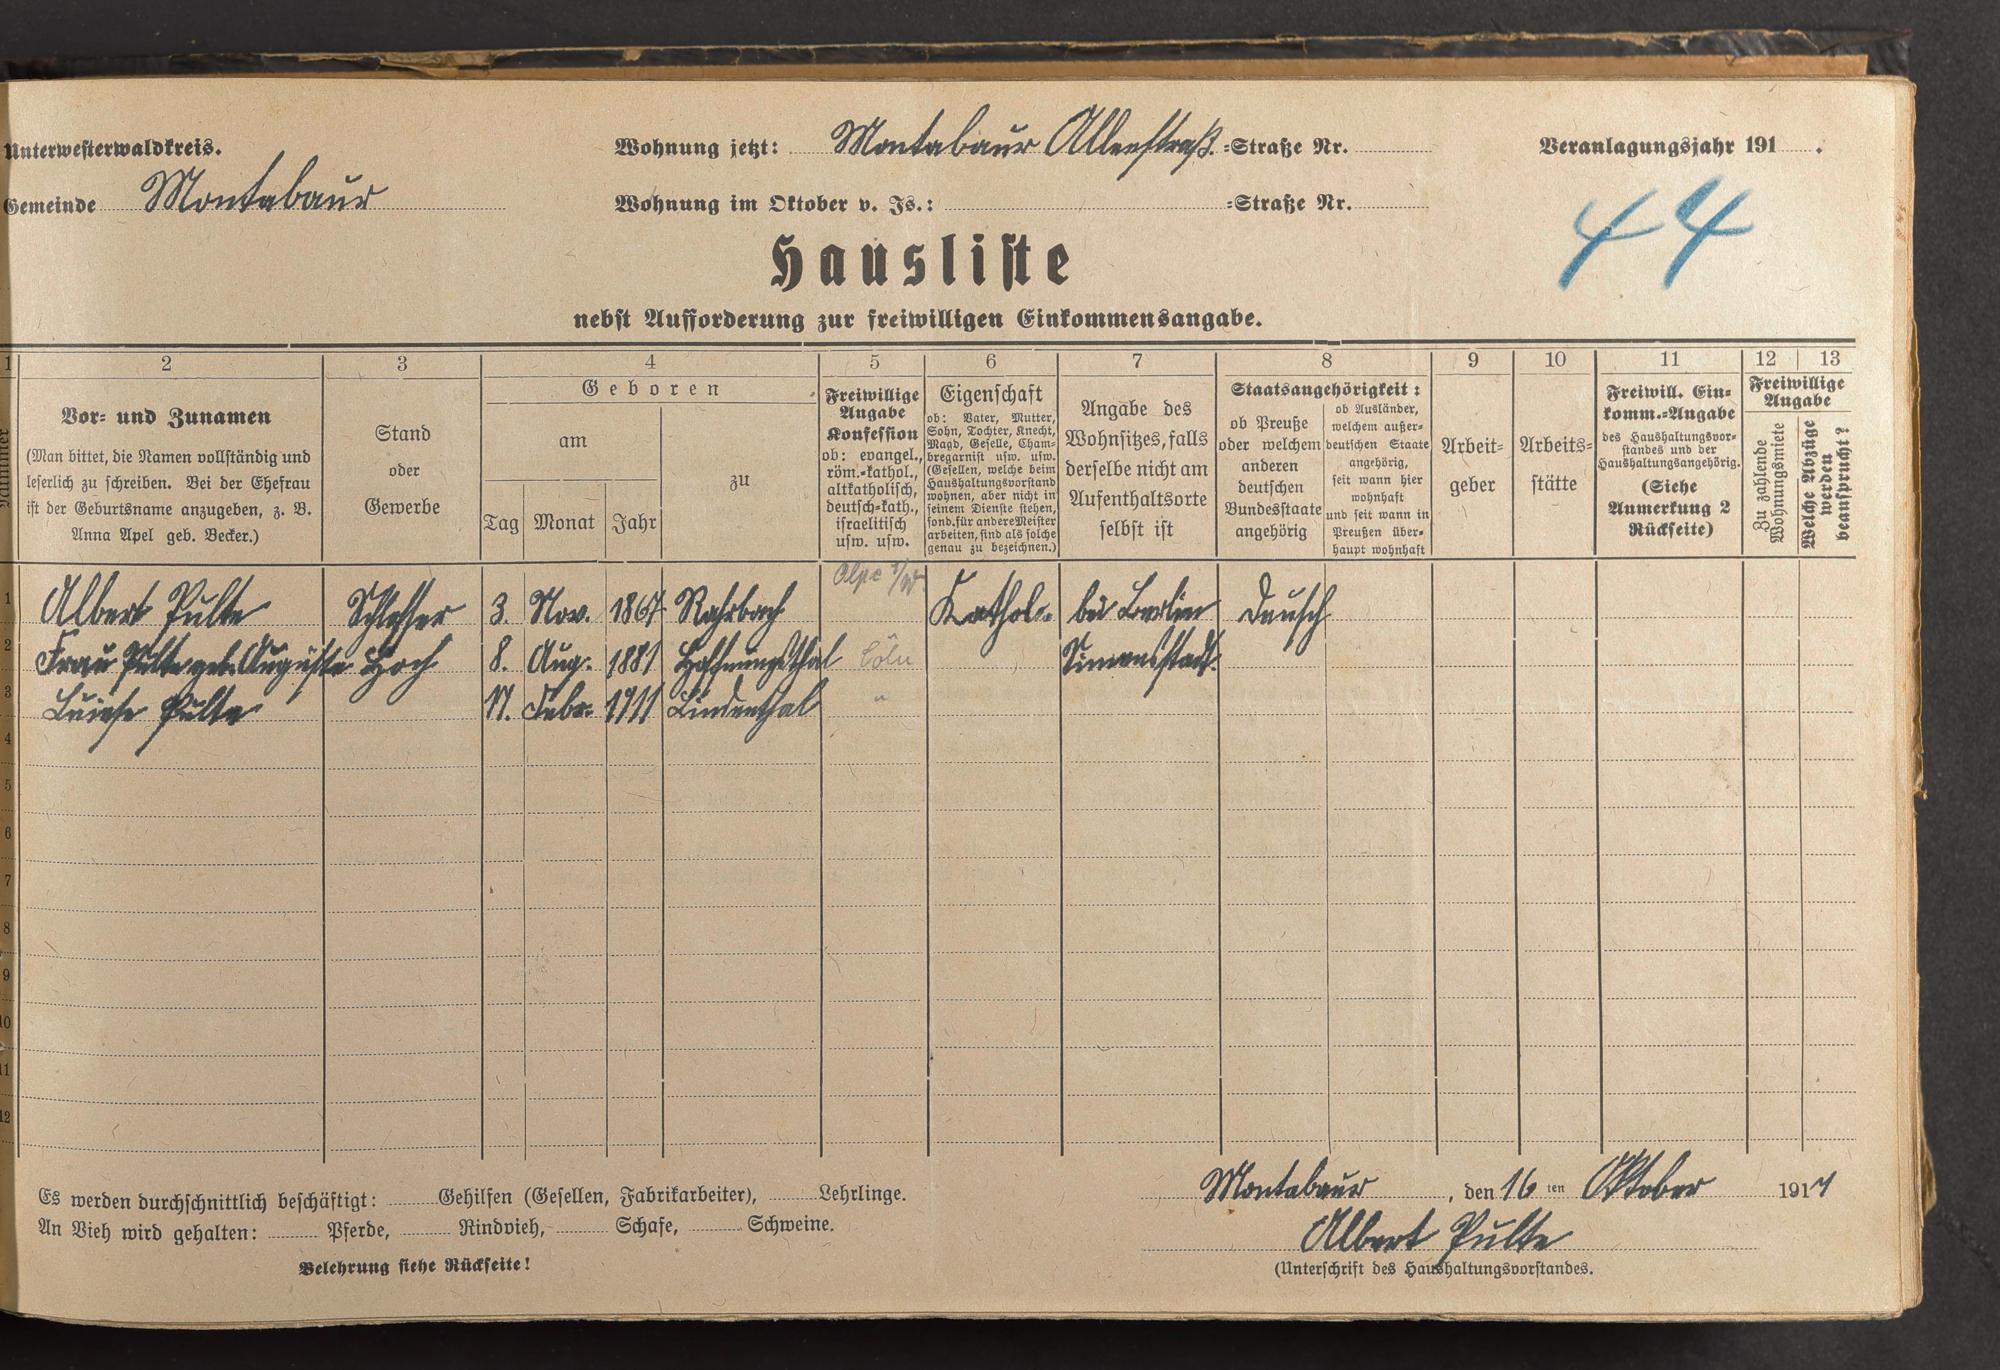 Unterwesterwaldkreis.
Wohnung jetzt: Montabaur Alleestraß. =Straße Nr.
Veranlagungsjahr 191 .
Gemeinde Montabaur
Wohnung im Oktober v. Js.: =Straße Nr.
44
Hausliste
nebst Aufforderung zur freiwilligen Einkommensangabe.
1 2 3 4 5 6 7 8 9 10 11 12 13
Nummer
Vor= und Zunamen
(Man bittet, die Namen vollständig und
leserlich zu schreiben. Bei der Ehefrau
ist der Geburtsname anzugeben, z. B.
Anna Apel geb. Becker.)
Stand
oder
Gewerbe
Geboren
am
Tag Monat Jahr
zu
Freiwillige
Angabe
Konfession
ob: evangel.,
röm.=kathol.,
altkatholisch,
deutsch=kath.,
israelitisch
usw. usw.
Eigenschaft
ob: Vater, Mutter,
Sohn, Tochter, Knecht,
Magd, Geselle, Cham-
bregarnist usw. usw.
(Gesellen, welche beim
Haushaltungsvorstand
wohnen, aber nicht in
seinem Dienste stehen,
sond. für andere Meister
arbeiten, sind als solche
genau zu bezeichnen.)
Angabe des
Wohnsitzes, falls
derselbe nicht am
Aufenthaltsorte
selbst ist
Staatsangehörigkeit:
ob Preuße
oder welchem
anderen
deutschen
Bundesstaate
angehörig
ob Ausländer,
welchem außer=
deutschen Staate
angehörig,
seit wann hier
wohnhaft
und seit wann in
Preußen über=
haupt wohnhaft
Arbeit=
geber
Arbeits=
stätte
Freiwill. Ein=
komm.=Angabe
des Haushaltungsvor=
standes und der
Haushaltungsangehörig.
(Siehe
Anmerkung 2
Rückseite)
Freiwillige
Angabe
Zu zahlende
Wohnungsmiete
Welche Abzüge
werden
beansprucht?
Olpe i/W
1 Albert Pulte Schlosser 3. Nov. 1867 Rahrbach Kathol. bei Berlin Deusch
2 Frau Pulte geb. Auguste Hoch 8. Aug. 1881 Hoffnungsthal Cöln Simensstadt.
3 Luiese Pulte 17. Febr. 1911 Lindenthal "
4
5
6
7
8
9
10
11
12
Es werden durchschnittlich beschäftigt: Gehilfen (Gesellen, Fabrikarbeiter), Lehrlinge.
An Vieh wird gehalten: Pferde, Rindvieh, Schafe, Schweine.
Belehrung siehe Rückseite!
Montabaur, den 16ten Oktober 1917
Albert Pulte
(Unterschrift des Haushaltungsvorstandes.